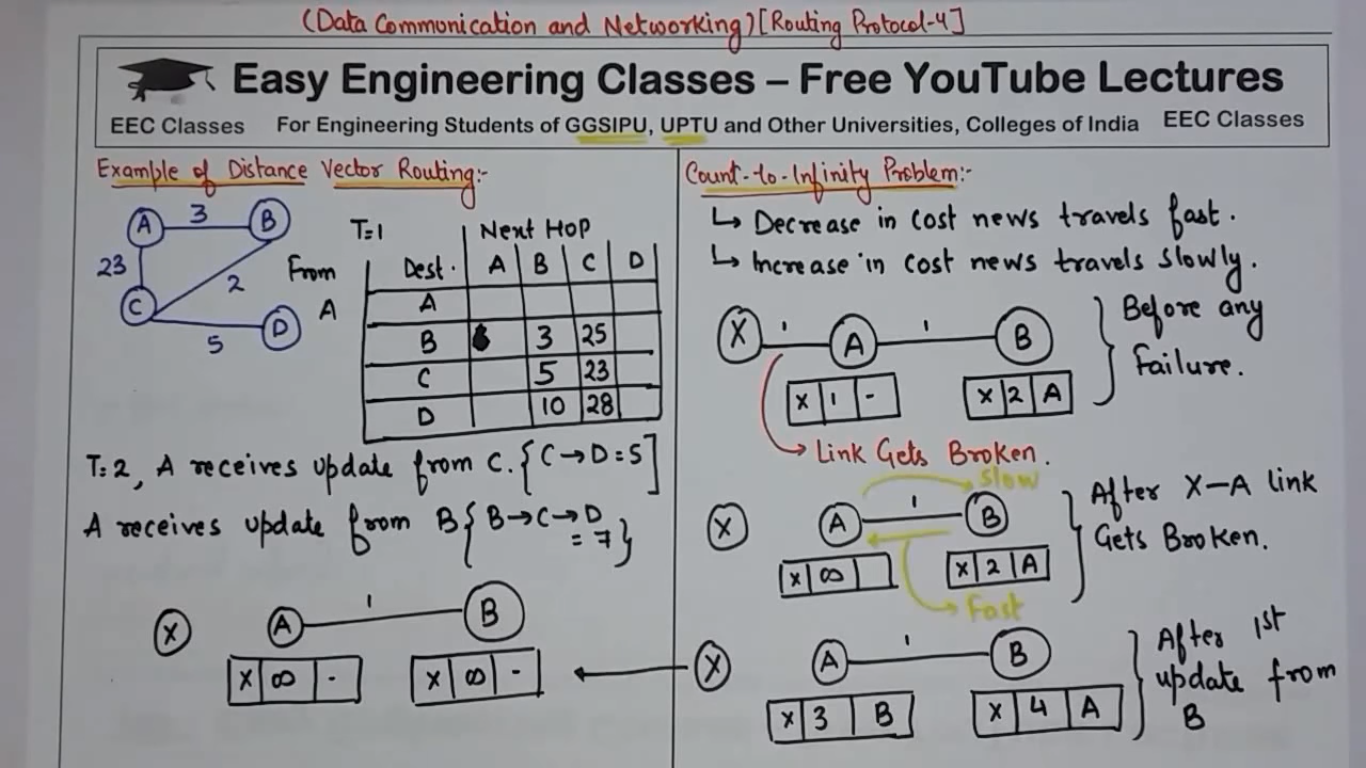 (Data Communication and Networking) [Routing Protocol-4]
Easy Engineering Classes – Free YouTube Lectures
EEC Classes For Engineering Students of GGSIPU, UPTU and Other Universities, Colleges of India EEC Classes
Example of Distance Vector Routing:-
A 3 B
23 2
C 5 D
From A
T=1 Next Hop
Dest. A B C D
A
B 3 25
C 5 23
D 10 28
T=2, A receives update from C. {C→D=5]
A receives update from B {B→C→D
=7}
X A 1 B
X ∞ - X ∞ -
Count-to-Infinity Problem:-
↳ Decrease in cost news travels fast.
↳ Increase in cost news travels slowly.
X 1 A 1 B
X 1 - X 2 A
Before any
Failure.
Link Gets Broken.
Slow
X A 1 B
X ∞ X 2 A
Fast
After X-A link
Gets Broken.
X A 1 B
X 3 B X 4 A
After 1st
update from
B